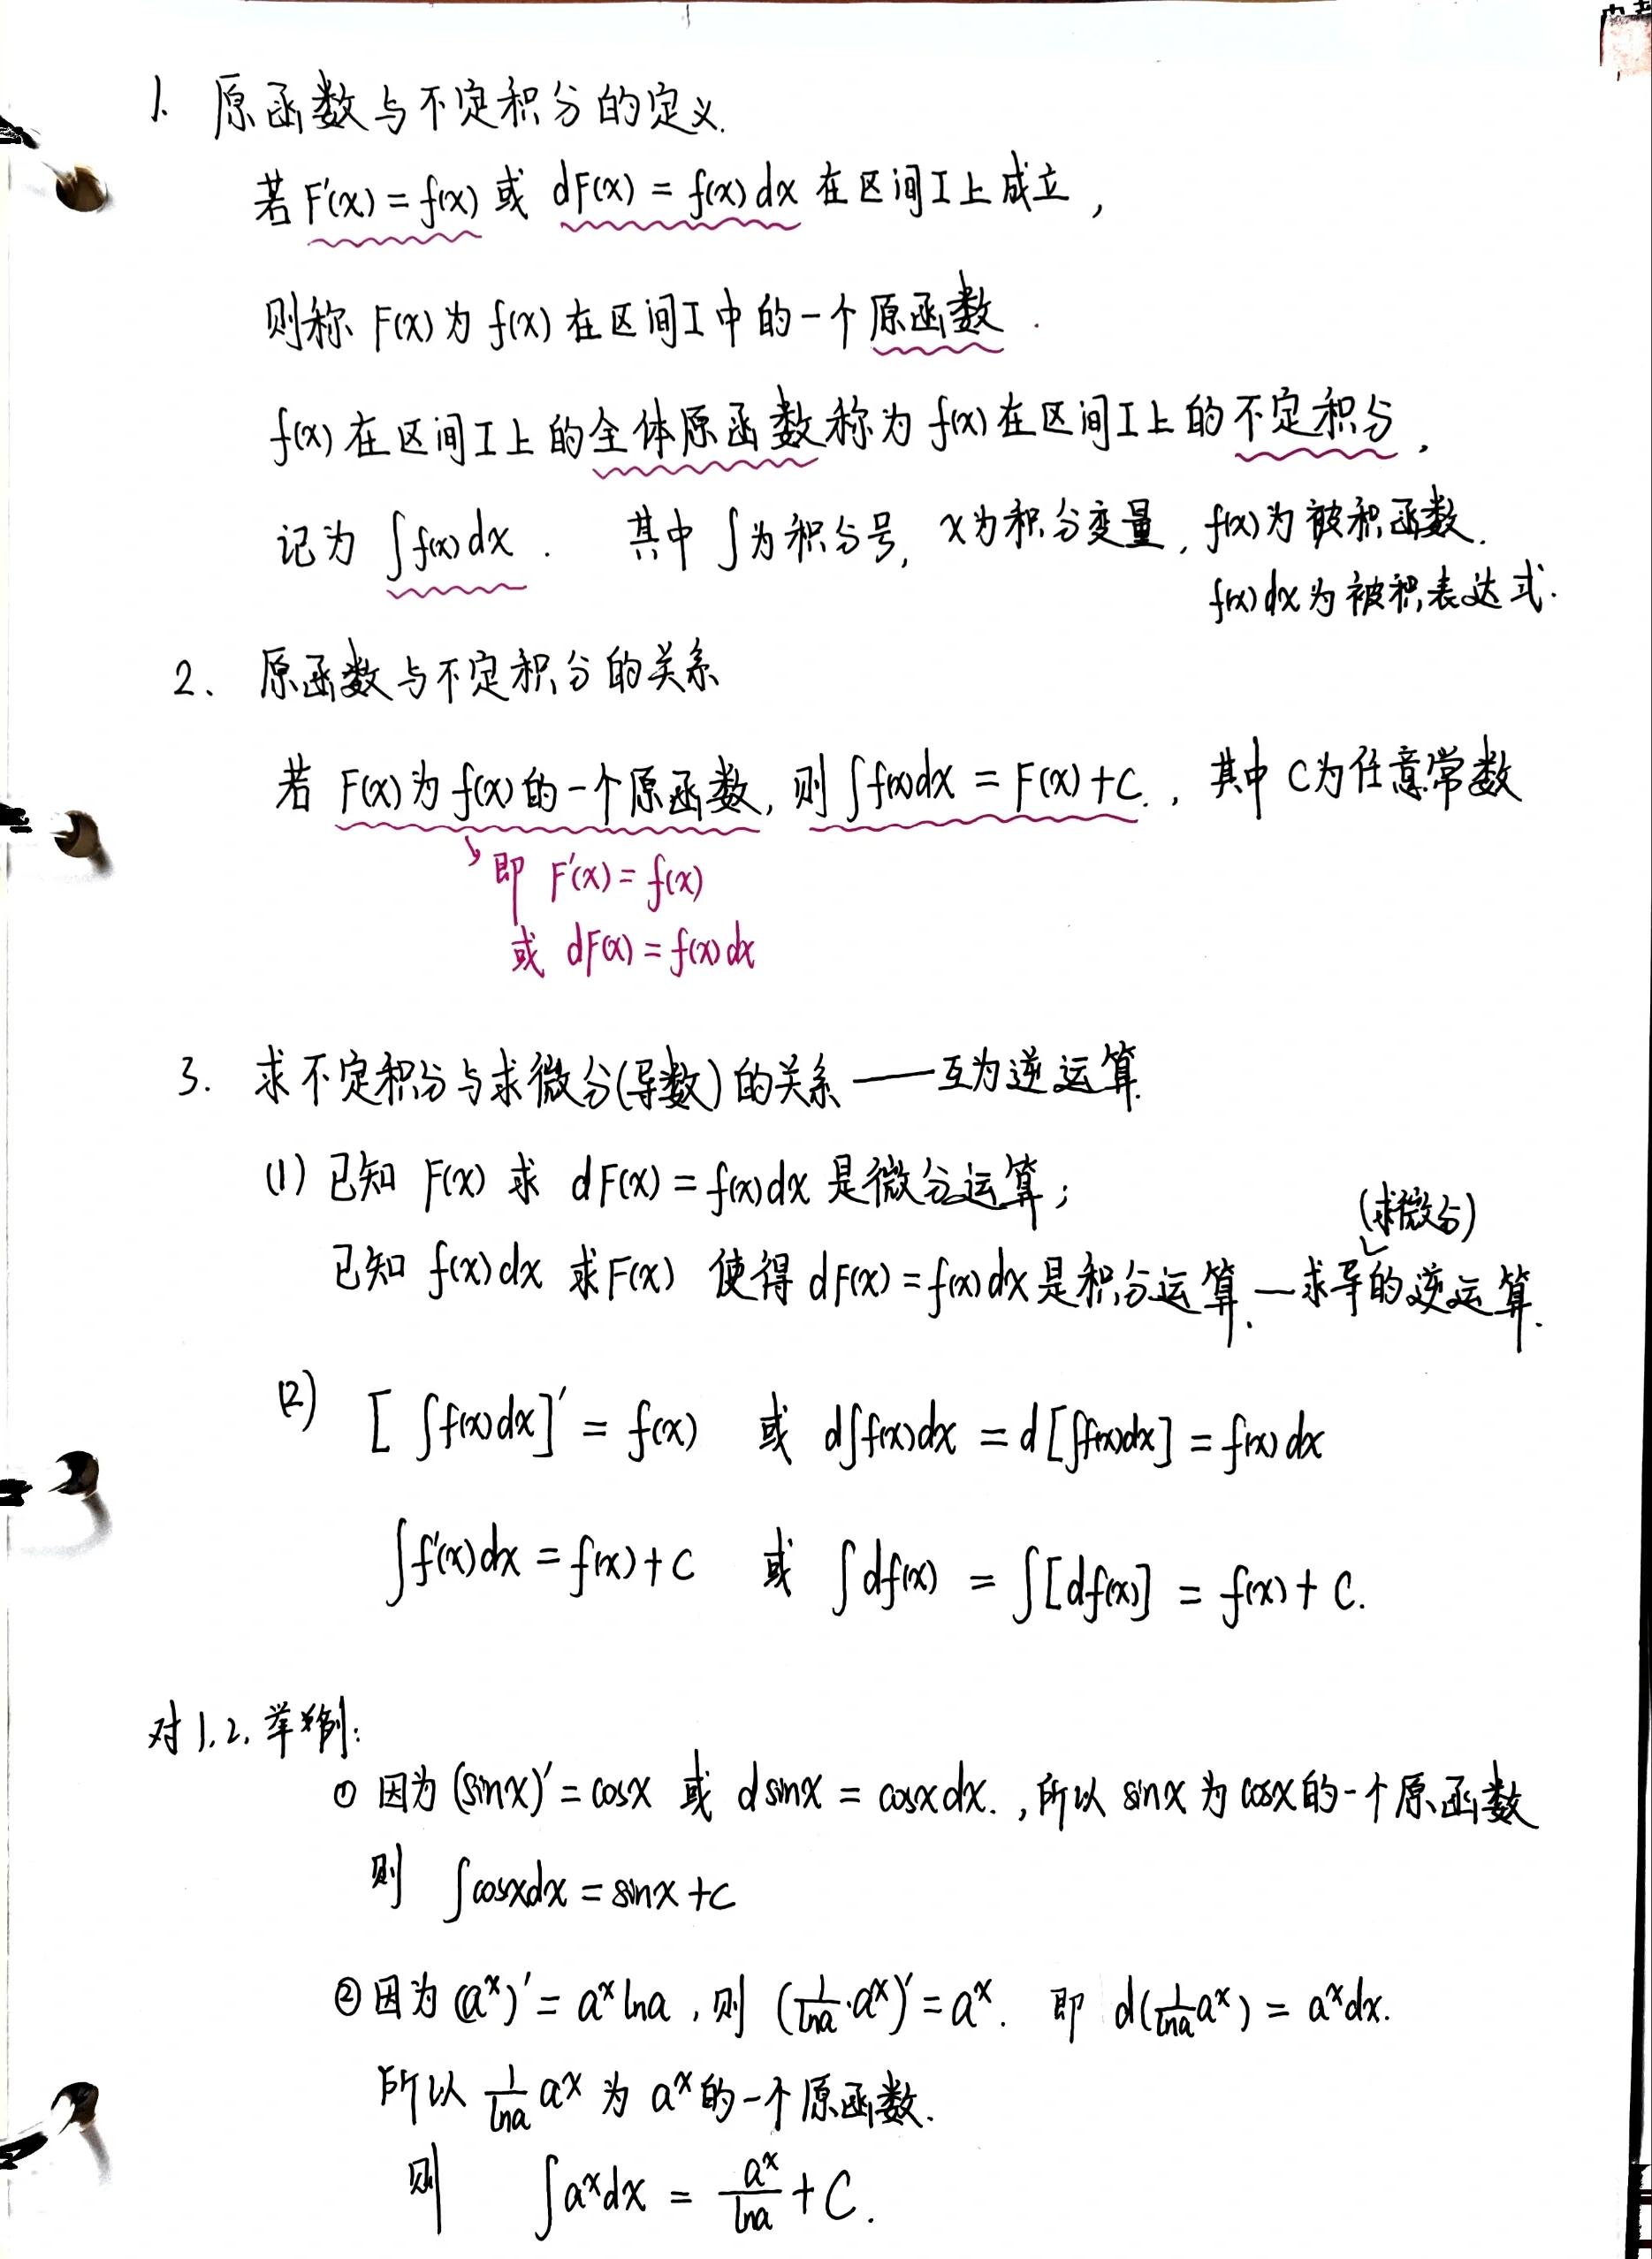 1. 原函数与不定积分的定义.
若 F'(x) = f(x) 或 dF(x) = f(x)dx 在区间I上成立,
则称 F(x) 为 f(x) 在区间I中的一个原函数.
f(x) 在区间I上的全体原函数称为 f(x) 在区间I上的不定积分,
记为 ∫f(x)dx. 其中 ∫为积分号, x为积分变量, f(x)为被积函数.
f(x)dx为被积表达式.
2、原函数与不定积分的关系
若 F(x)为f(x)的一个原函数, 则 ∫f(x)dx = F(x)+C., 其中 C为任意常数
即 F'(x) = f(x)
或 dF(x) = f(x)dx
3. 求不定积分与求微分(导数)的关系——互为逆运算.
(1) 已知 F(x) 求 dF(x) = f(x)dx 是微分运算;
(求微分)
已知 f(x)dx 求F(x) 使得 dF(x) = f(x)dx是积分运算.—求导的逆运算.
(2) [∫f(x)dx]' = f(x) 或 d∫f(x)dx = d[∫f(x)dx] = f(x)dx
∫f'(x)dx = f(x)+C 或 ∫df(x) = ∫[df(x)] = f(x)+C.
对1.2.举例:
① 因为 (sinx)' = cosx 或 dsinx = cosxdx., 所以 sinx 为 cosx的一个原函数
则 ∫cosxdx = sinx+C
② 因为 (a^x)' = a^x lna, 则 (1/lna·a^x)' = a^x. 即 d(1/lna a^x) = a^x dx.
所以 1/lna a^x 为 a^x的一个原函数.
则 ∫a^x dx = a^x/lna + C.